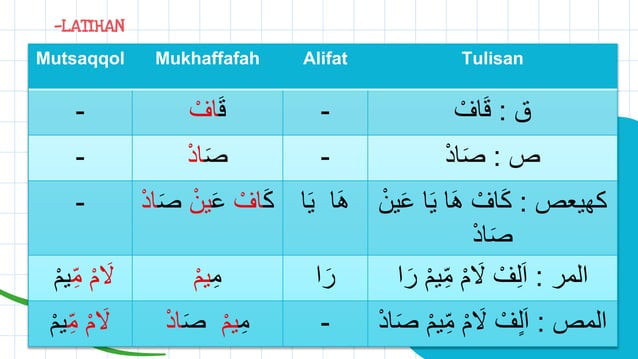 -LATIHAN
Mutsaqqol Mukhaffafah Alifat Tulisan
- قَافْ - ق : قَافْ
- صَادْ - ص : صَادْ
- كَافْ عَينْ صَادْ هَا يَا كهيعص : كَافْ هَا يَا عَينْ
صَادْ
لَامْ مِّيمْ مِيمْ رَا المر : اَلِفْ لَامْ مِّيمْ رَا
لَامْ مِّيمْ مِيمْ صَادْ - المص : اَلٍفْ لَامْ مِّيمْ صَادْ